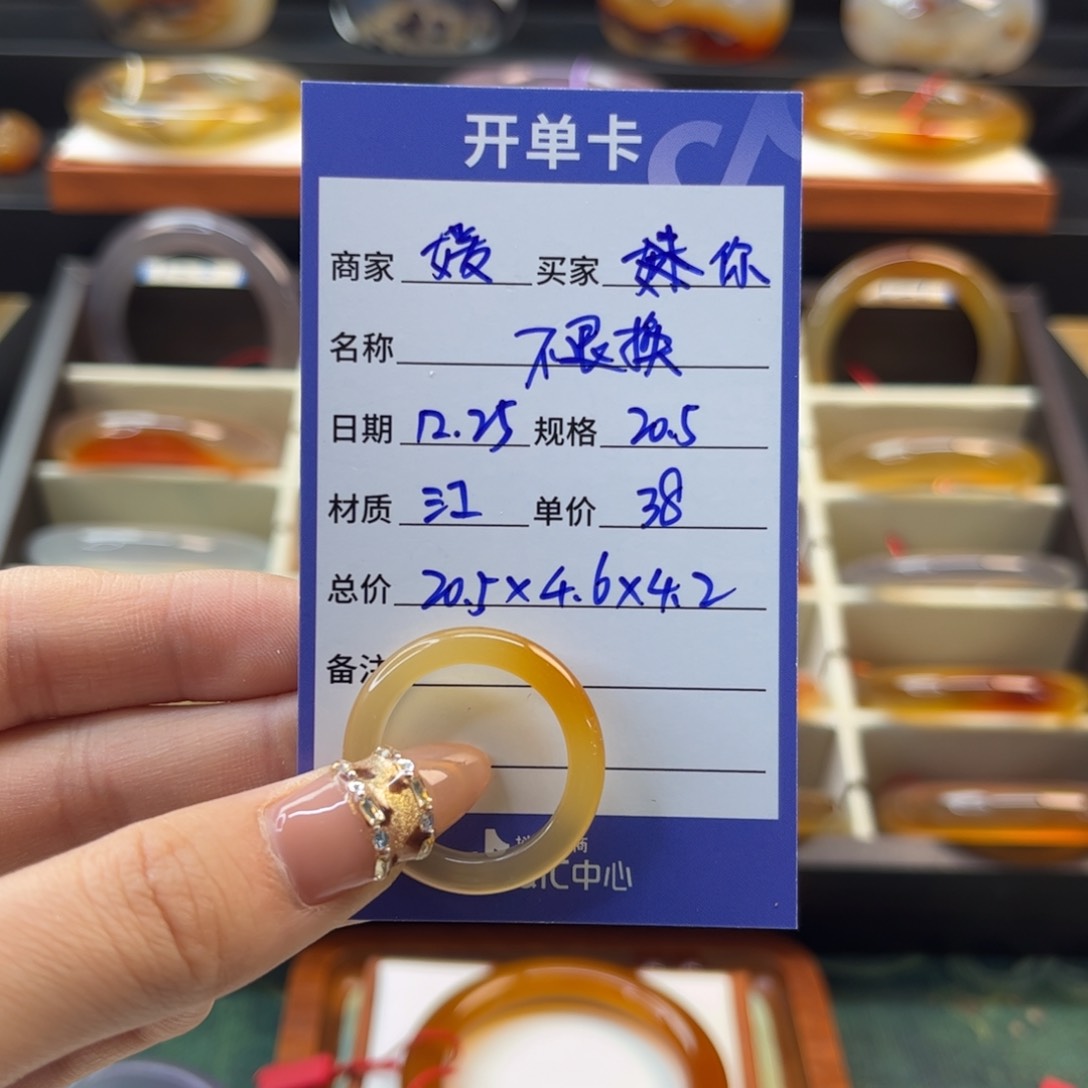 开单卡
商家 媛 买家 妹你
名称 不退换
日期 12.25 规格 20.5
材质 三工 单价 38
总价 20.5×4.6×4.2
备注
中心